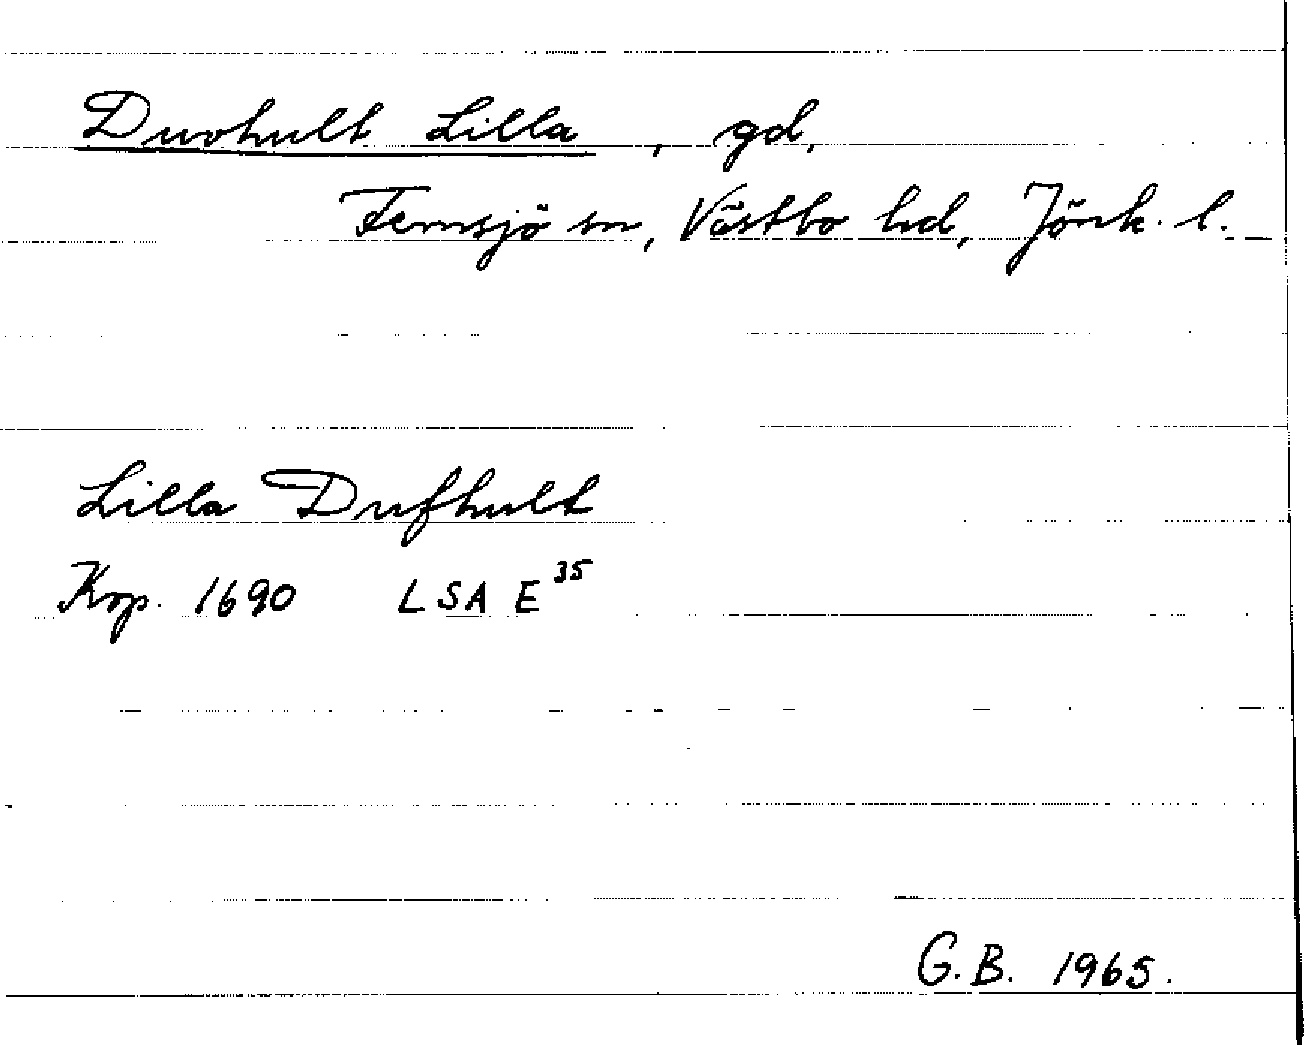 Duvhult Lilla, gd,
Femsjö sn, Västbo hd, Jönk. l.
Lilla Dufhult
Kop. 1690 LSA E 35
G.B. 1965.